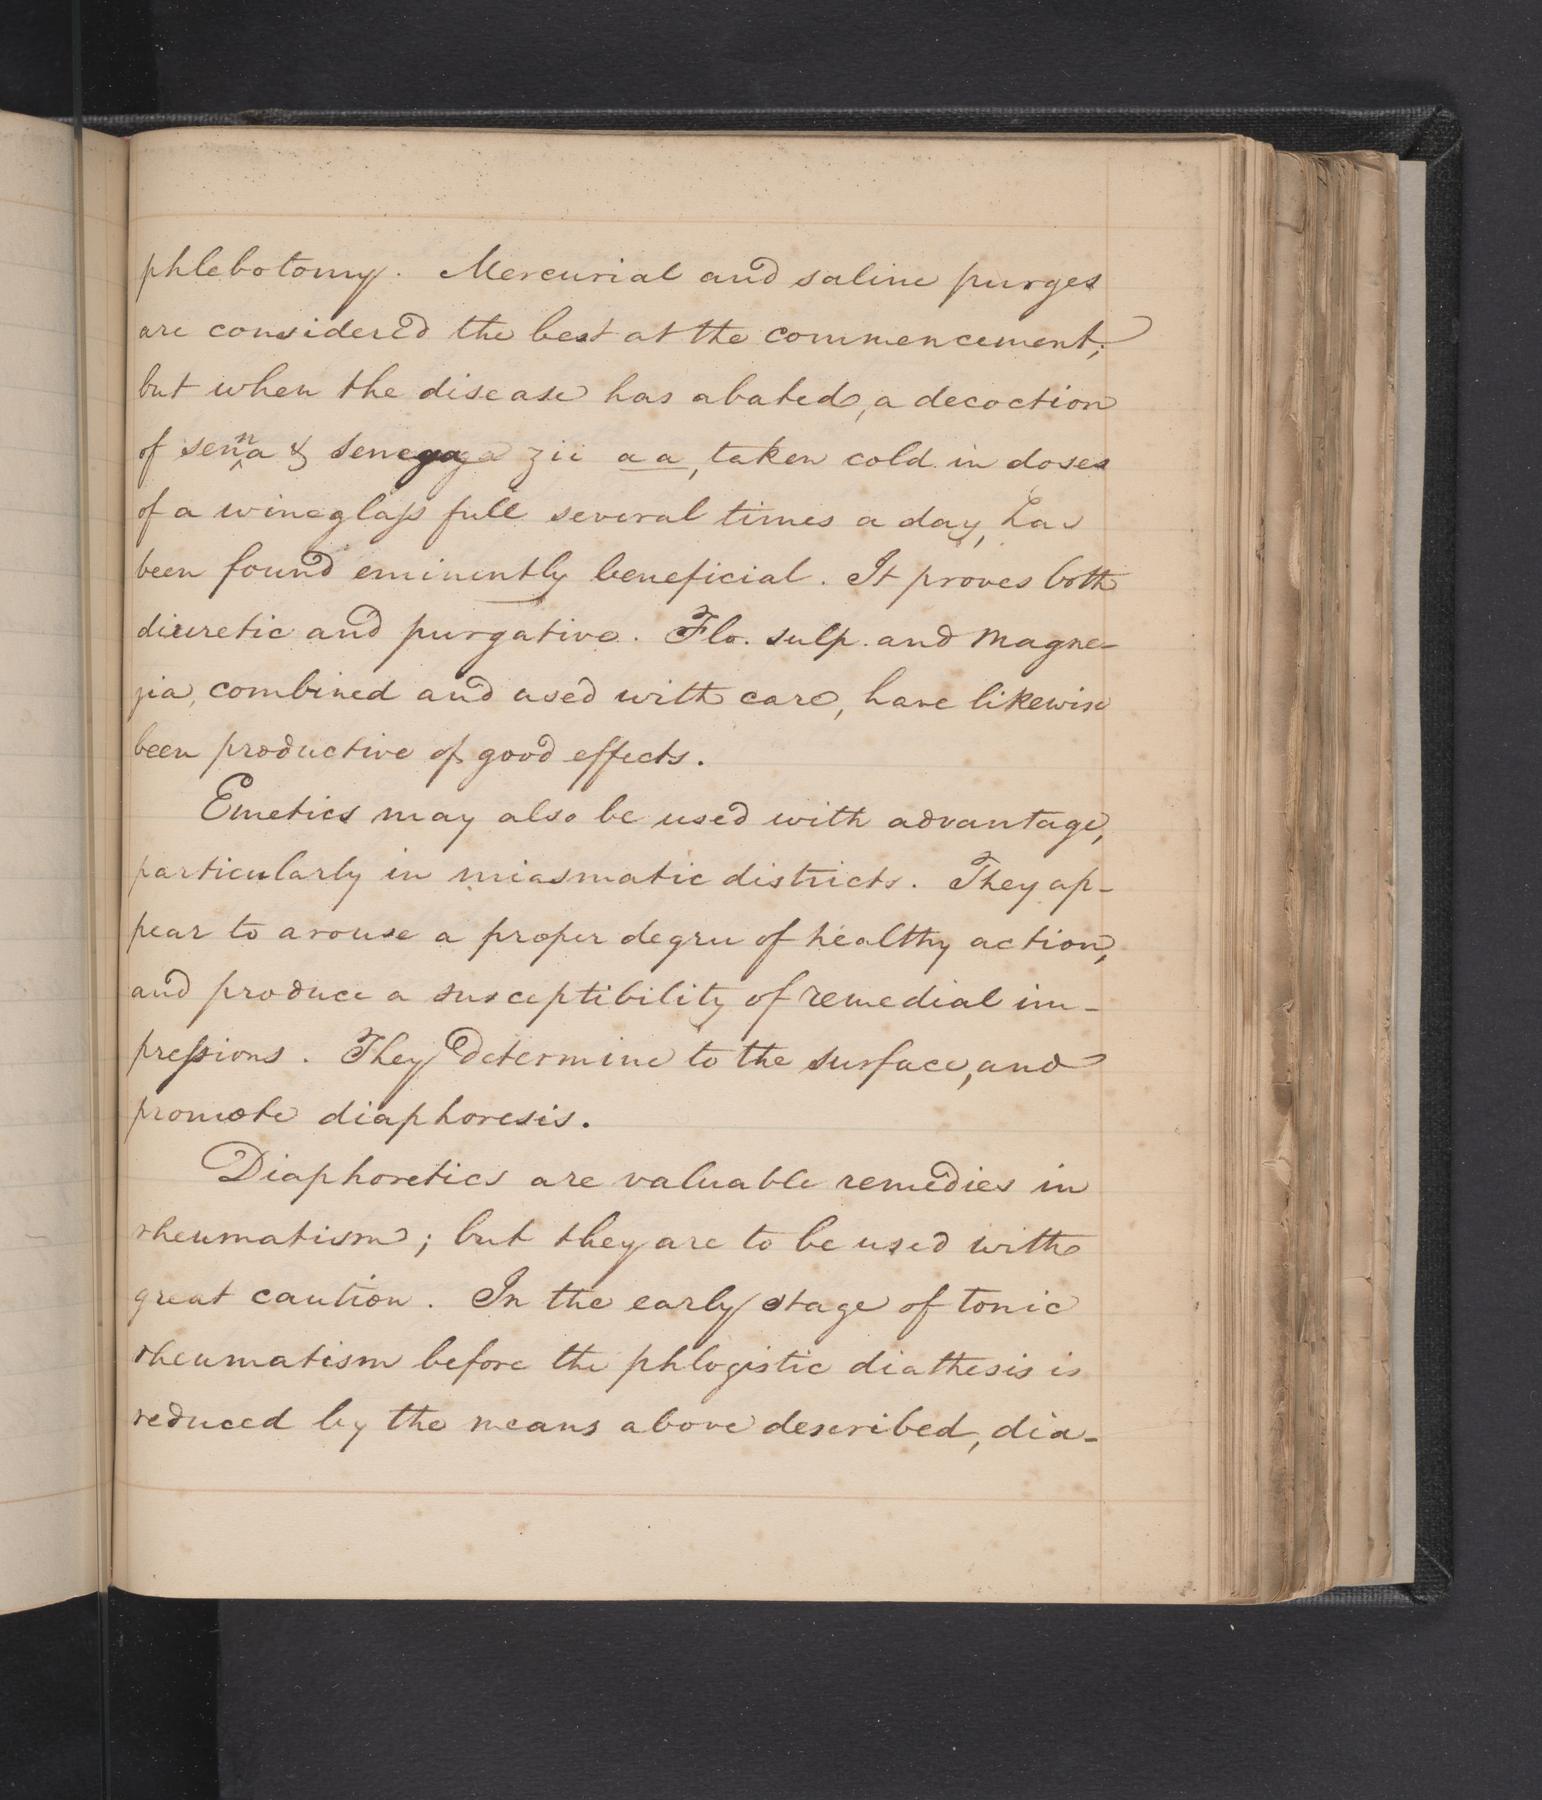 phlebotomy. Mercurial and saline purges
are considered the best at the commencement;
but when the disease has abated, a decoction
of senna & senega ʒii aa, taken cold in doses
of a wineglass full several times a day, has
been found eminently beneficial. It proves both
diuretic and purgative. Flo. sulp. and magne-
zia, combined and used with care, have likewise
been productive of good effects.
Emetics may also be used with advantage,
particularly in miasmatic districts. They ap-
pear to arouse a proper degree of healthy action,
and produce a susceptibility of remedial im-
pressions. They determine to the surface, and
promote diaphoresis.
Diaphoretics are valuable remedies in
rheumatism; but they are to be used with
great caution. In the early stage of tonic
rheumatism before the phlogistic diathesis is
reduced by the means above described, dia-